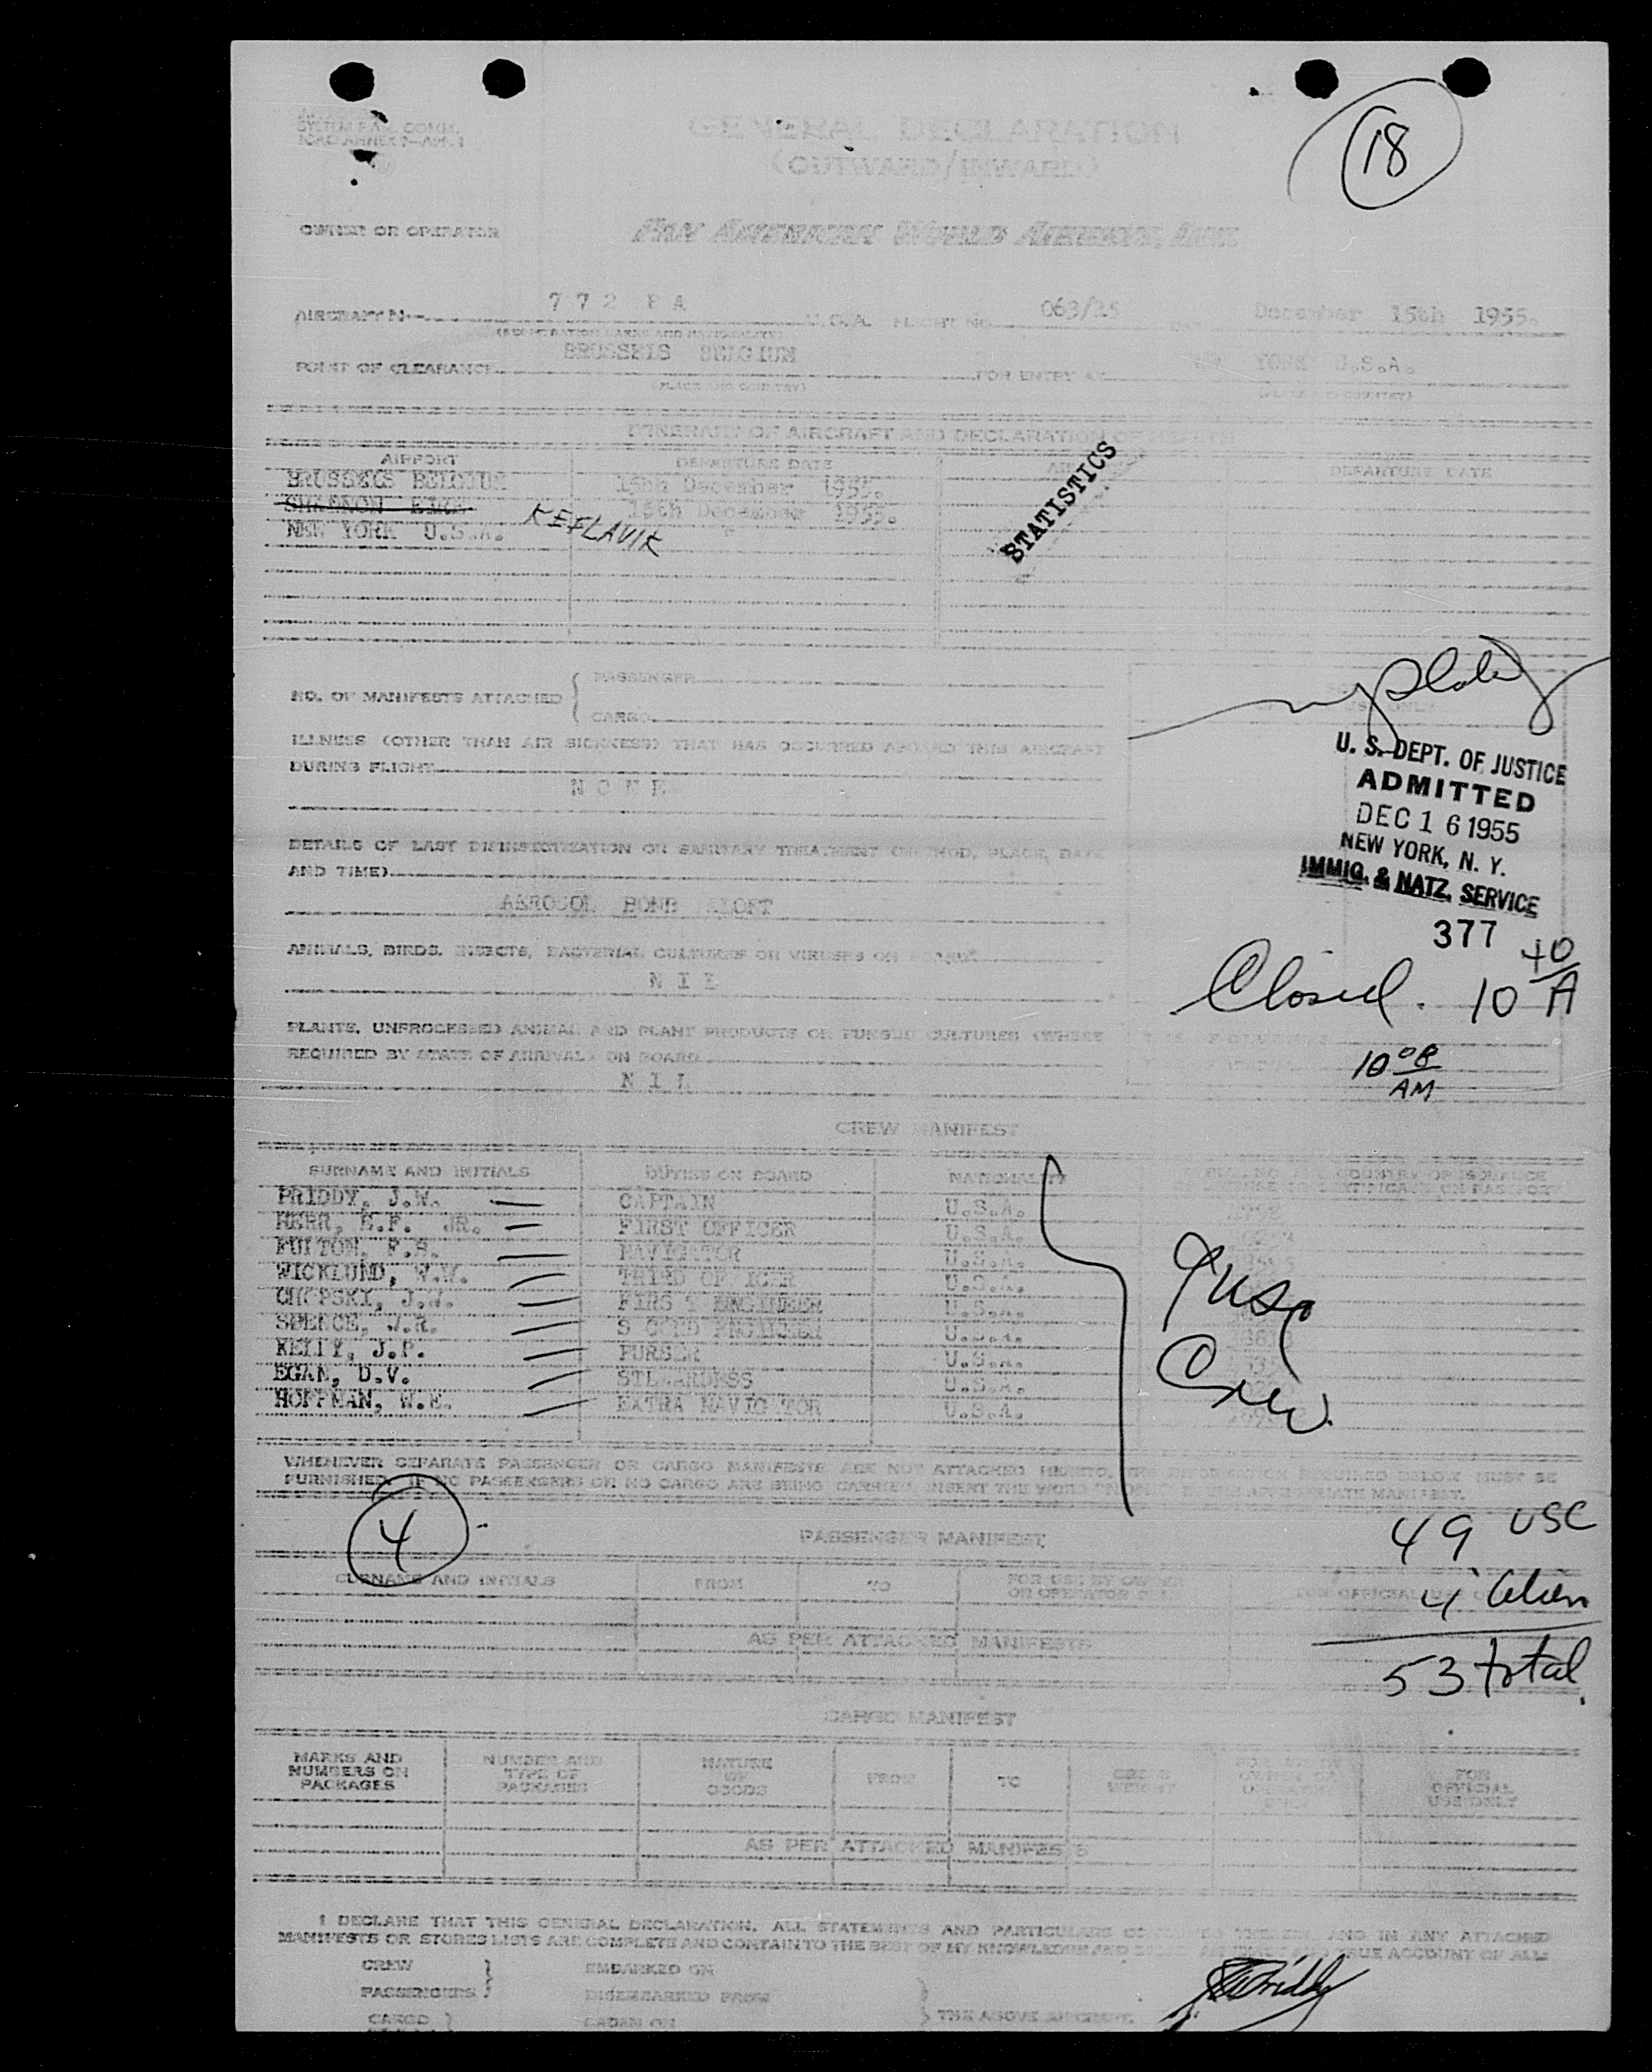 18
GENERAL DECLARATION
(OUTWARD/INWARD)
OWNER OR OPERATOR PAN AMERICAN WORLD AIRWAYS, INC.
AIRCRAFT N— 7 7 2 P A U.S.A. FLIGHT NO. 063/15 December 15th 1955.
(REGISTRATION MARKS AND NATIONALITY)
POINT OF CLEARANCE BRUSSELS BELGIUM FOR ENTRY AT NEW YORK U.S.A.
(PLACE AND COUNTRY) (PLACE AND COUNTRY)
ITINERARY OF AIRCRAFT AND DECLARATION OF HEALTH
AIRPORT DEPARTURE DATE DEPARTURE DATE
BRUSSELS BELGIUM 15th December 1955.
SHANNON EIRE KEFLAVIK 15th December 1955.
NEW YORK U.S.A.
STATISTICS
NO. OF MANIFESTS ATTACHED { PASSENGER
CARGO
USE ONLY
ILLNESS (OTHER THAN AIR SICKNESS) THAT HAS OCCURRED ABOARD THIS AIRCRAFT
DURING FLIGHT
N O N E
U. S. DEPT. OF JUSTICE
ADMITTED
DEC 16 1955
NEW YORK, N. Y.
IMMIG. & NATZ. SERVICE
377
DETAILS OF LAST DISINSECTIZATION OR SANITARY TREATMENT (METHOD, PLACE, DATE
AND TIME)
AEROSOL BOMB ALOFT
ANIMALS, BIRDS, INSECTS, BACTERIAL CULTURES OR VIRUSES ON BOARD
N I L
Closed. 10 40/A
PLANTS, UNPROCESSED ANIMAL AND PLANT PRODUCTS OR FUNGUS CULTURES (WHERE
REQUIRED BY STATE OF ARRIVAL) ON BOARD
N I L
10 08 AM
CREW MANIFEST
SURNAME AND INITIALS DUTIES ON BOARD NATIONALITY
PRIDDY, J.W. CAPTAIN U.S.A.
KERR, E.F. JR. FIRST OFFICER U.S.A.
FULTON, F.S. NAVIGATOR U.S.A.
WICKLUND, W.W. THIRD OFFICER U.S.A.
J.W. FIRST ENGINEER U.S.A.
SPENCE, J.R. SECOND ENGINEER U.S.A.
KELLY, J.P. PURSER U.S.A.
EGAN, D.V. STEWARDESS U.S.A.
HOFFMAN, W.E. EXTRA NAVIGATOR U.S.A.
Crew
WHENEVER SEPARATE PASSENGER OR CARGO MANIFESTS ARE NOT ATTACHED HERETO, THE INFORMATION REQUIRED BELOW MUST BE
FURNISHED. IF NO PASSENGERS OR NO CARGO ARE BEING CARRIED, INSERT THE WORD IN THE APPROPRIATE MANIFEST.
4
PASSENGER MANIFEST
49 USC
4 alien
53 total
SURNAME AND INITIALS FROM TO FOR USE BY OWNER
OR OPERATOR ONLY FOR OFFICIAL USE ONLY
AS PER ATTACHED MANIFESTS
CARGO MANIFEST
MARKS AND
NUMBERS ON
PACKAGES
NUMBER AND
TYPE OF
PACKAGES
NATURE
OF
GOODS
FROM
TO
GROSS
WEIGHT
FOR
OFFICIAL
USE ONLY
AS PER ATTACHED MANIFESTS
I DECLARE THAT THIS GENERAL DECLARATION, ALL STATEMENTS AND PARTICULARS AND IN ANY ATTACHED
MANIFESTS OR STORES LISTS ARE COMPLETE AND CONTAIN TO THE BEST OF MY KNOWLEDGE AND TRUE ACCOUNT OF ALL:
CREW } EMBARKED ON
PASSENGERS } DISEMBARKED FROM
CARGO } LADEN ON } THE ABOVE AIRCRAFT.
JWPriddy